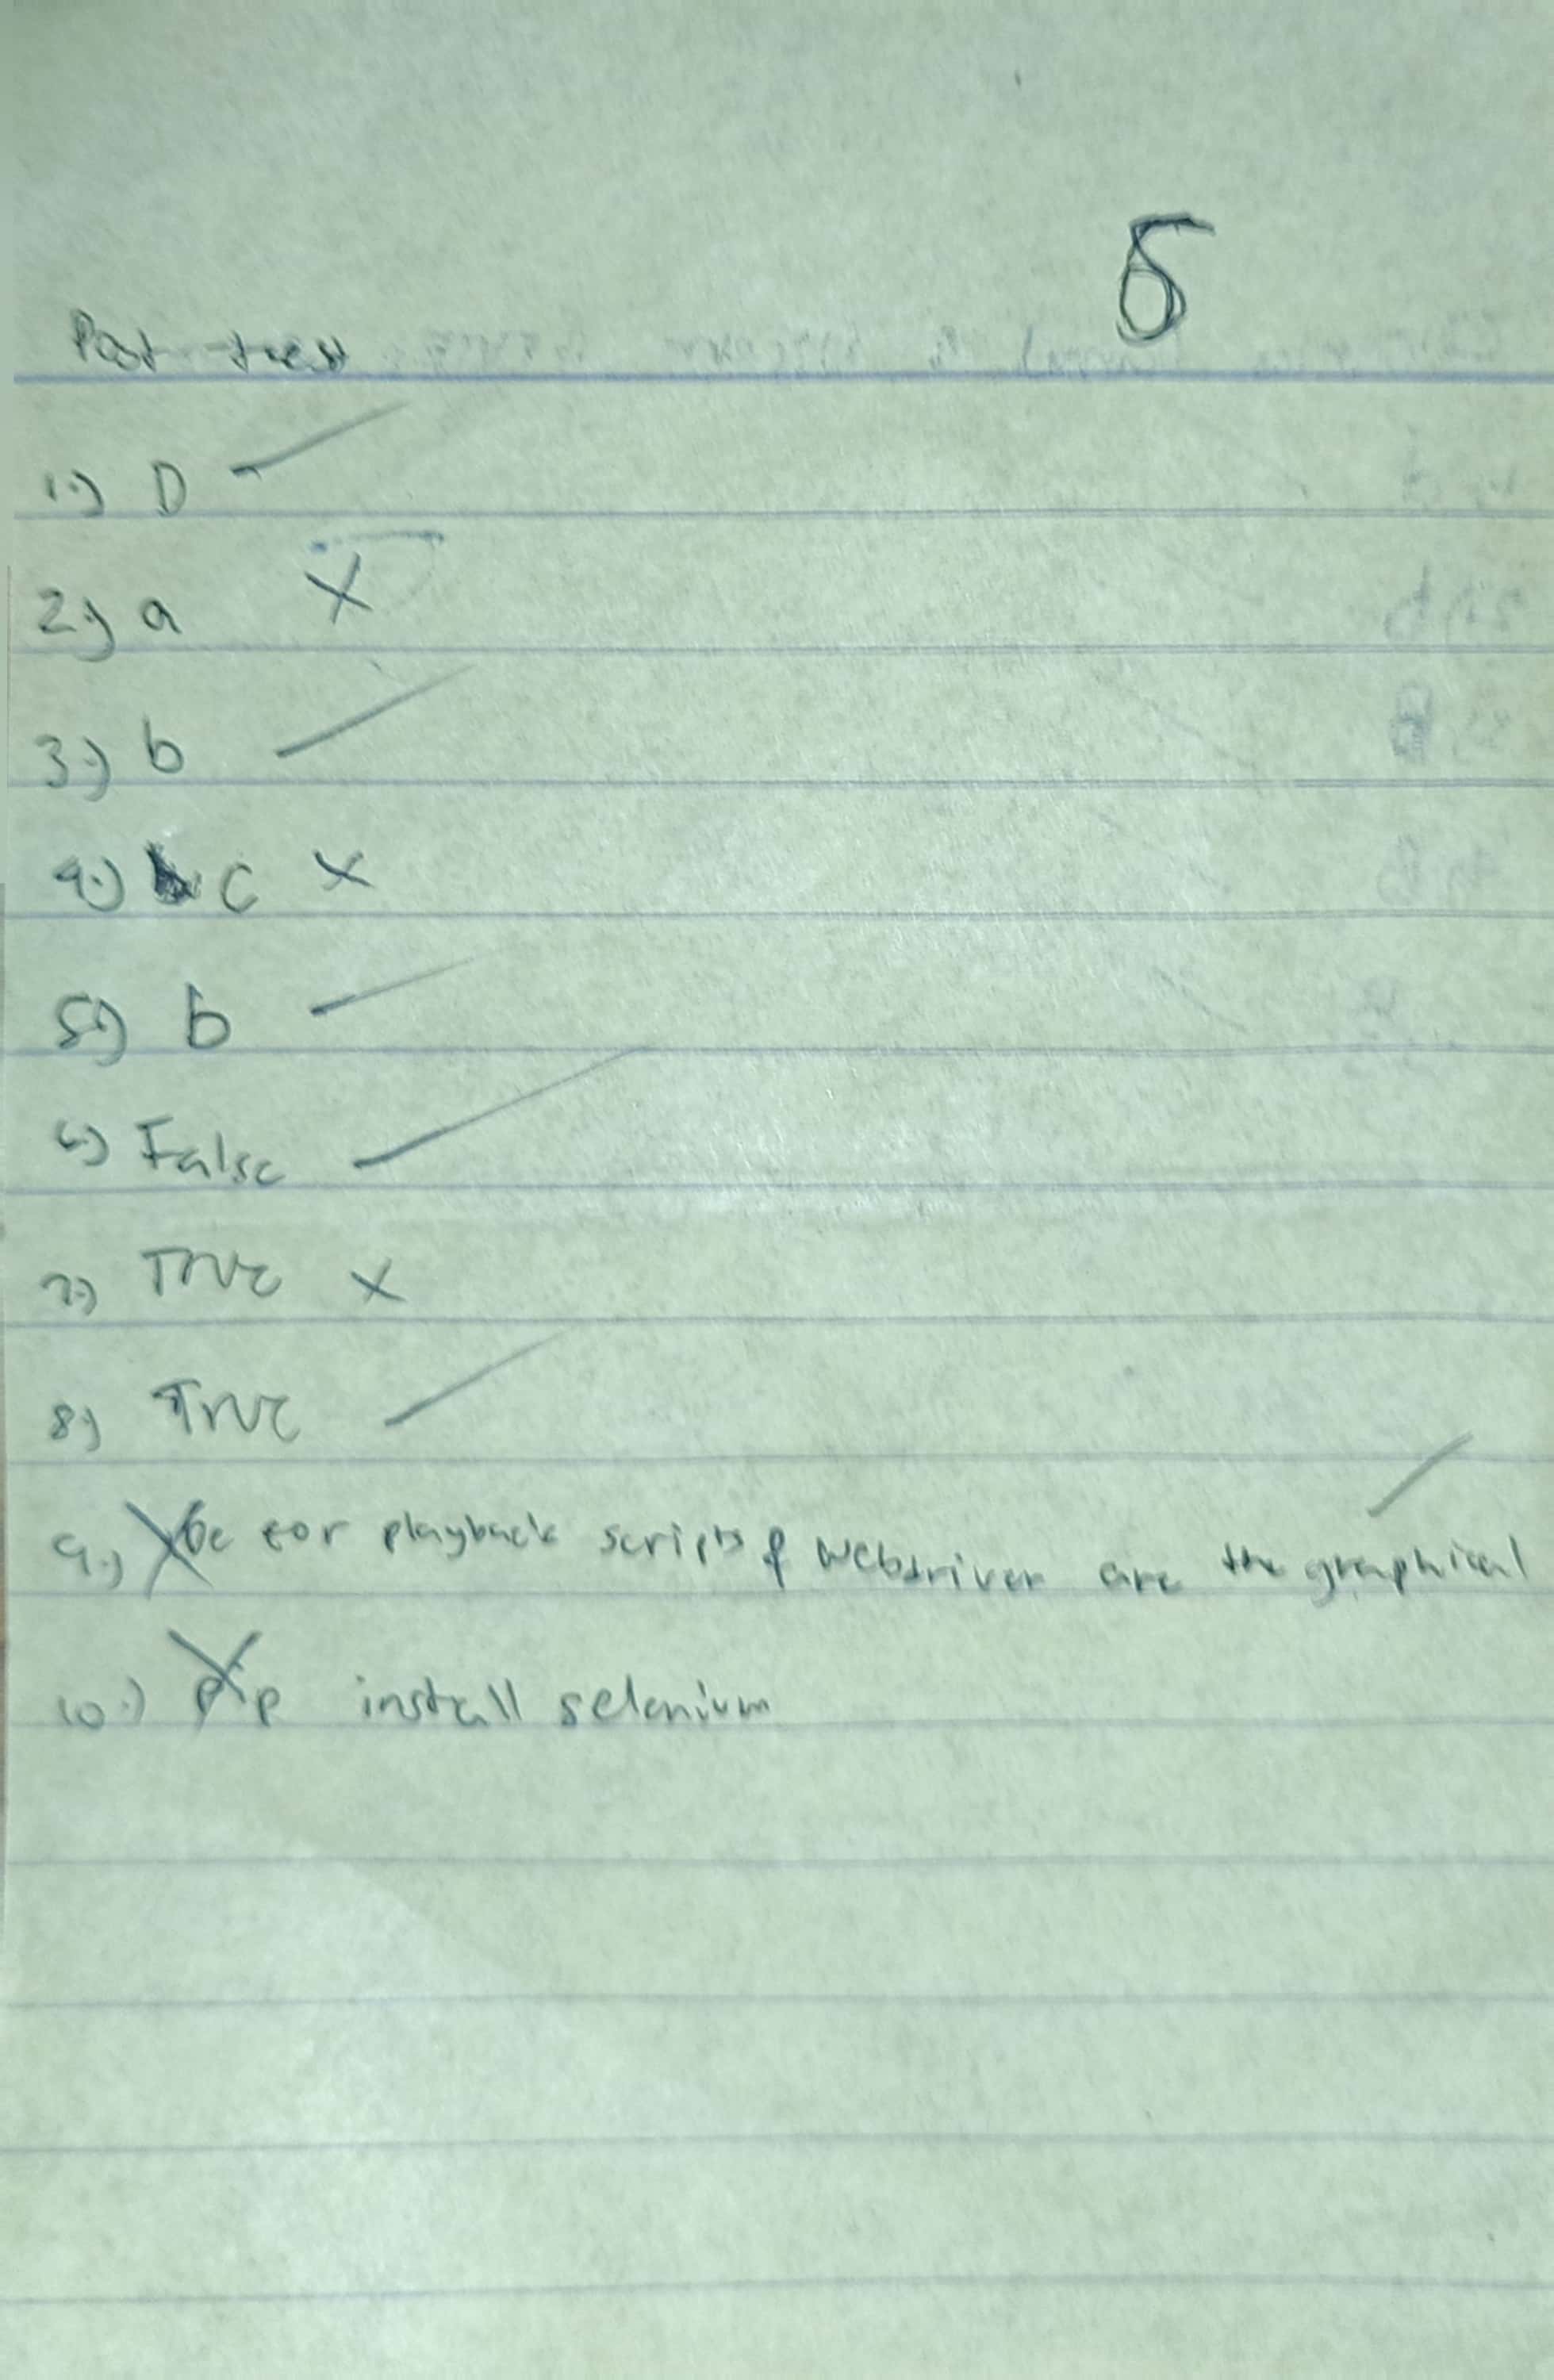 5
Post test
1.) D
2.) a
3.) b
4.) C
5.) b
6.) False
7.) True
8.) True
9.) for playback scripts & webdriver are the graphical
10.) pip install selenium